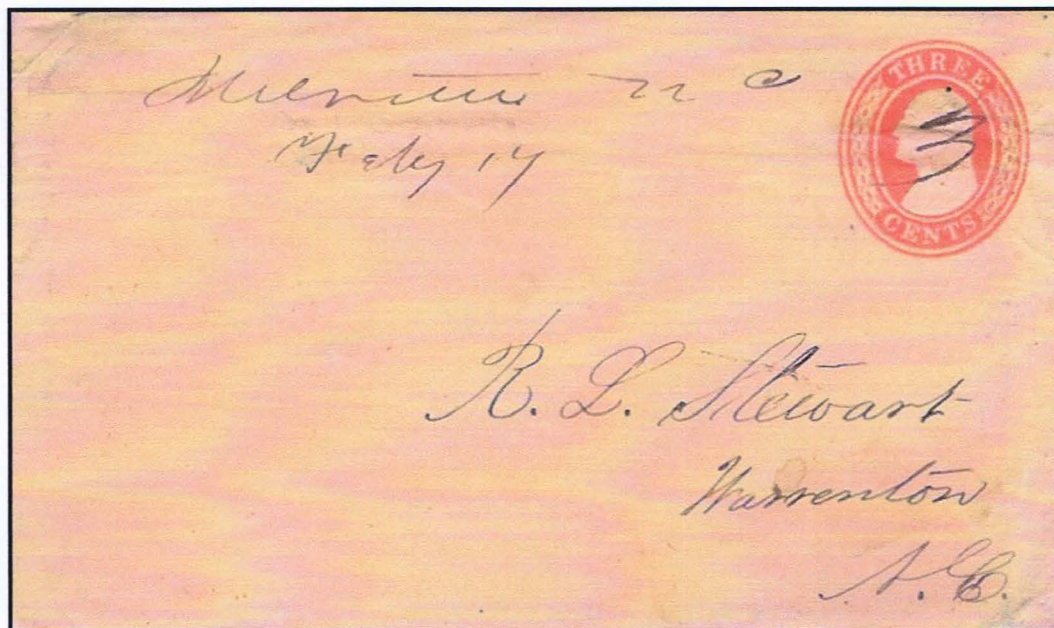 N C
Feby 17
THREE
3
CENTS
R. L. Stewart
Warrenton
N.C.